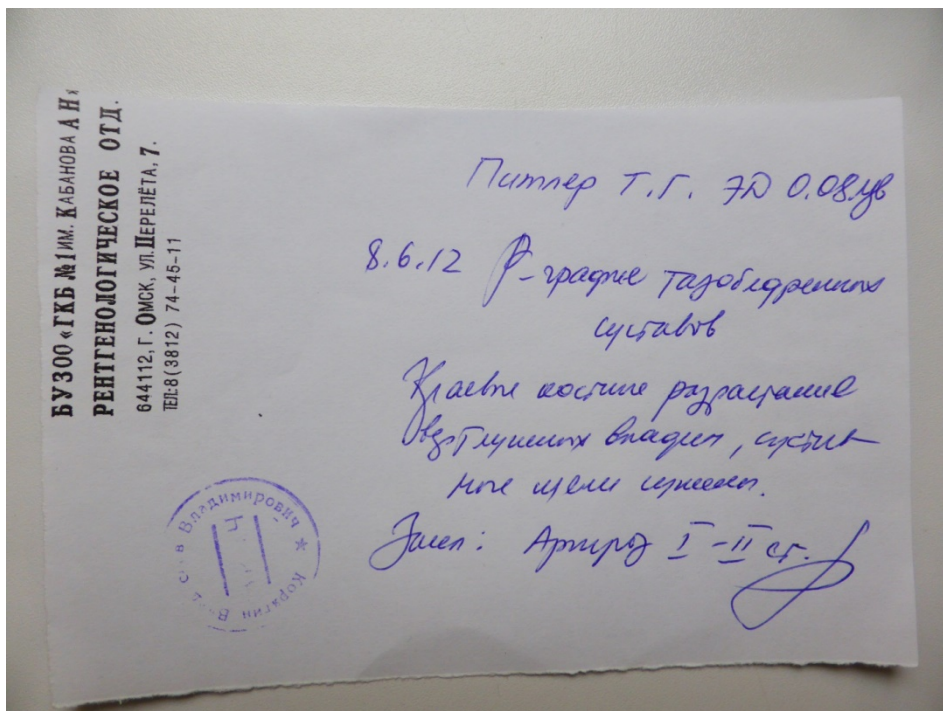 БУЗОО «ГКБ №1 ИМ. КАБАНОВА А Н»
РЕНТГЕНОЛОГИЧЕСКОЕ ОТД.
644112, Г. ОМСК, УЛ. ПЕРЕЛЁТА, 7.
ТЕЛ:8(3812) 74-45-11
Т.Г. ЭД 0.08
8.6.12 Р-графие тазобедренных
суставов
Краевые костные разрастание
вертлужных впадин, сустав-
ные щели сужены.
Закл: Артроз I-II ст.
Владимирович * Корягин